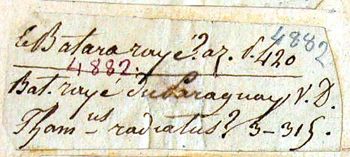 Le Batara rayé? az. t. 420
4882
4882.
Bat. rayé du Paraguay, V. D.
Tham-us radiatus? 3-315.